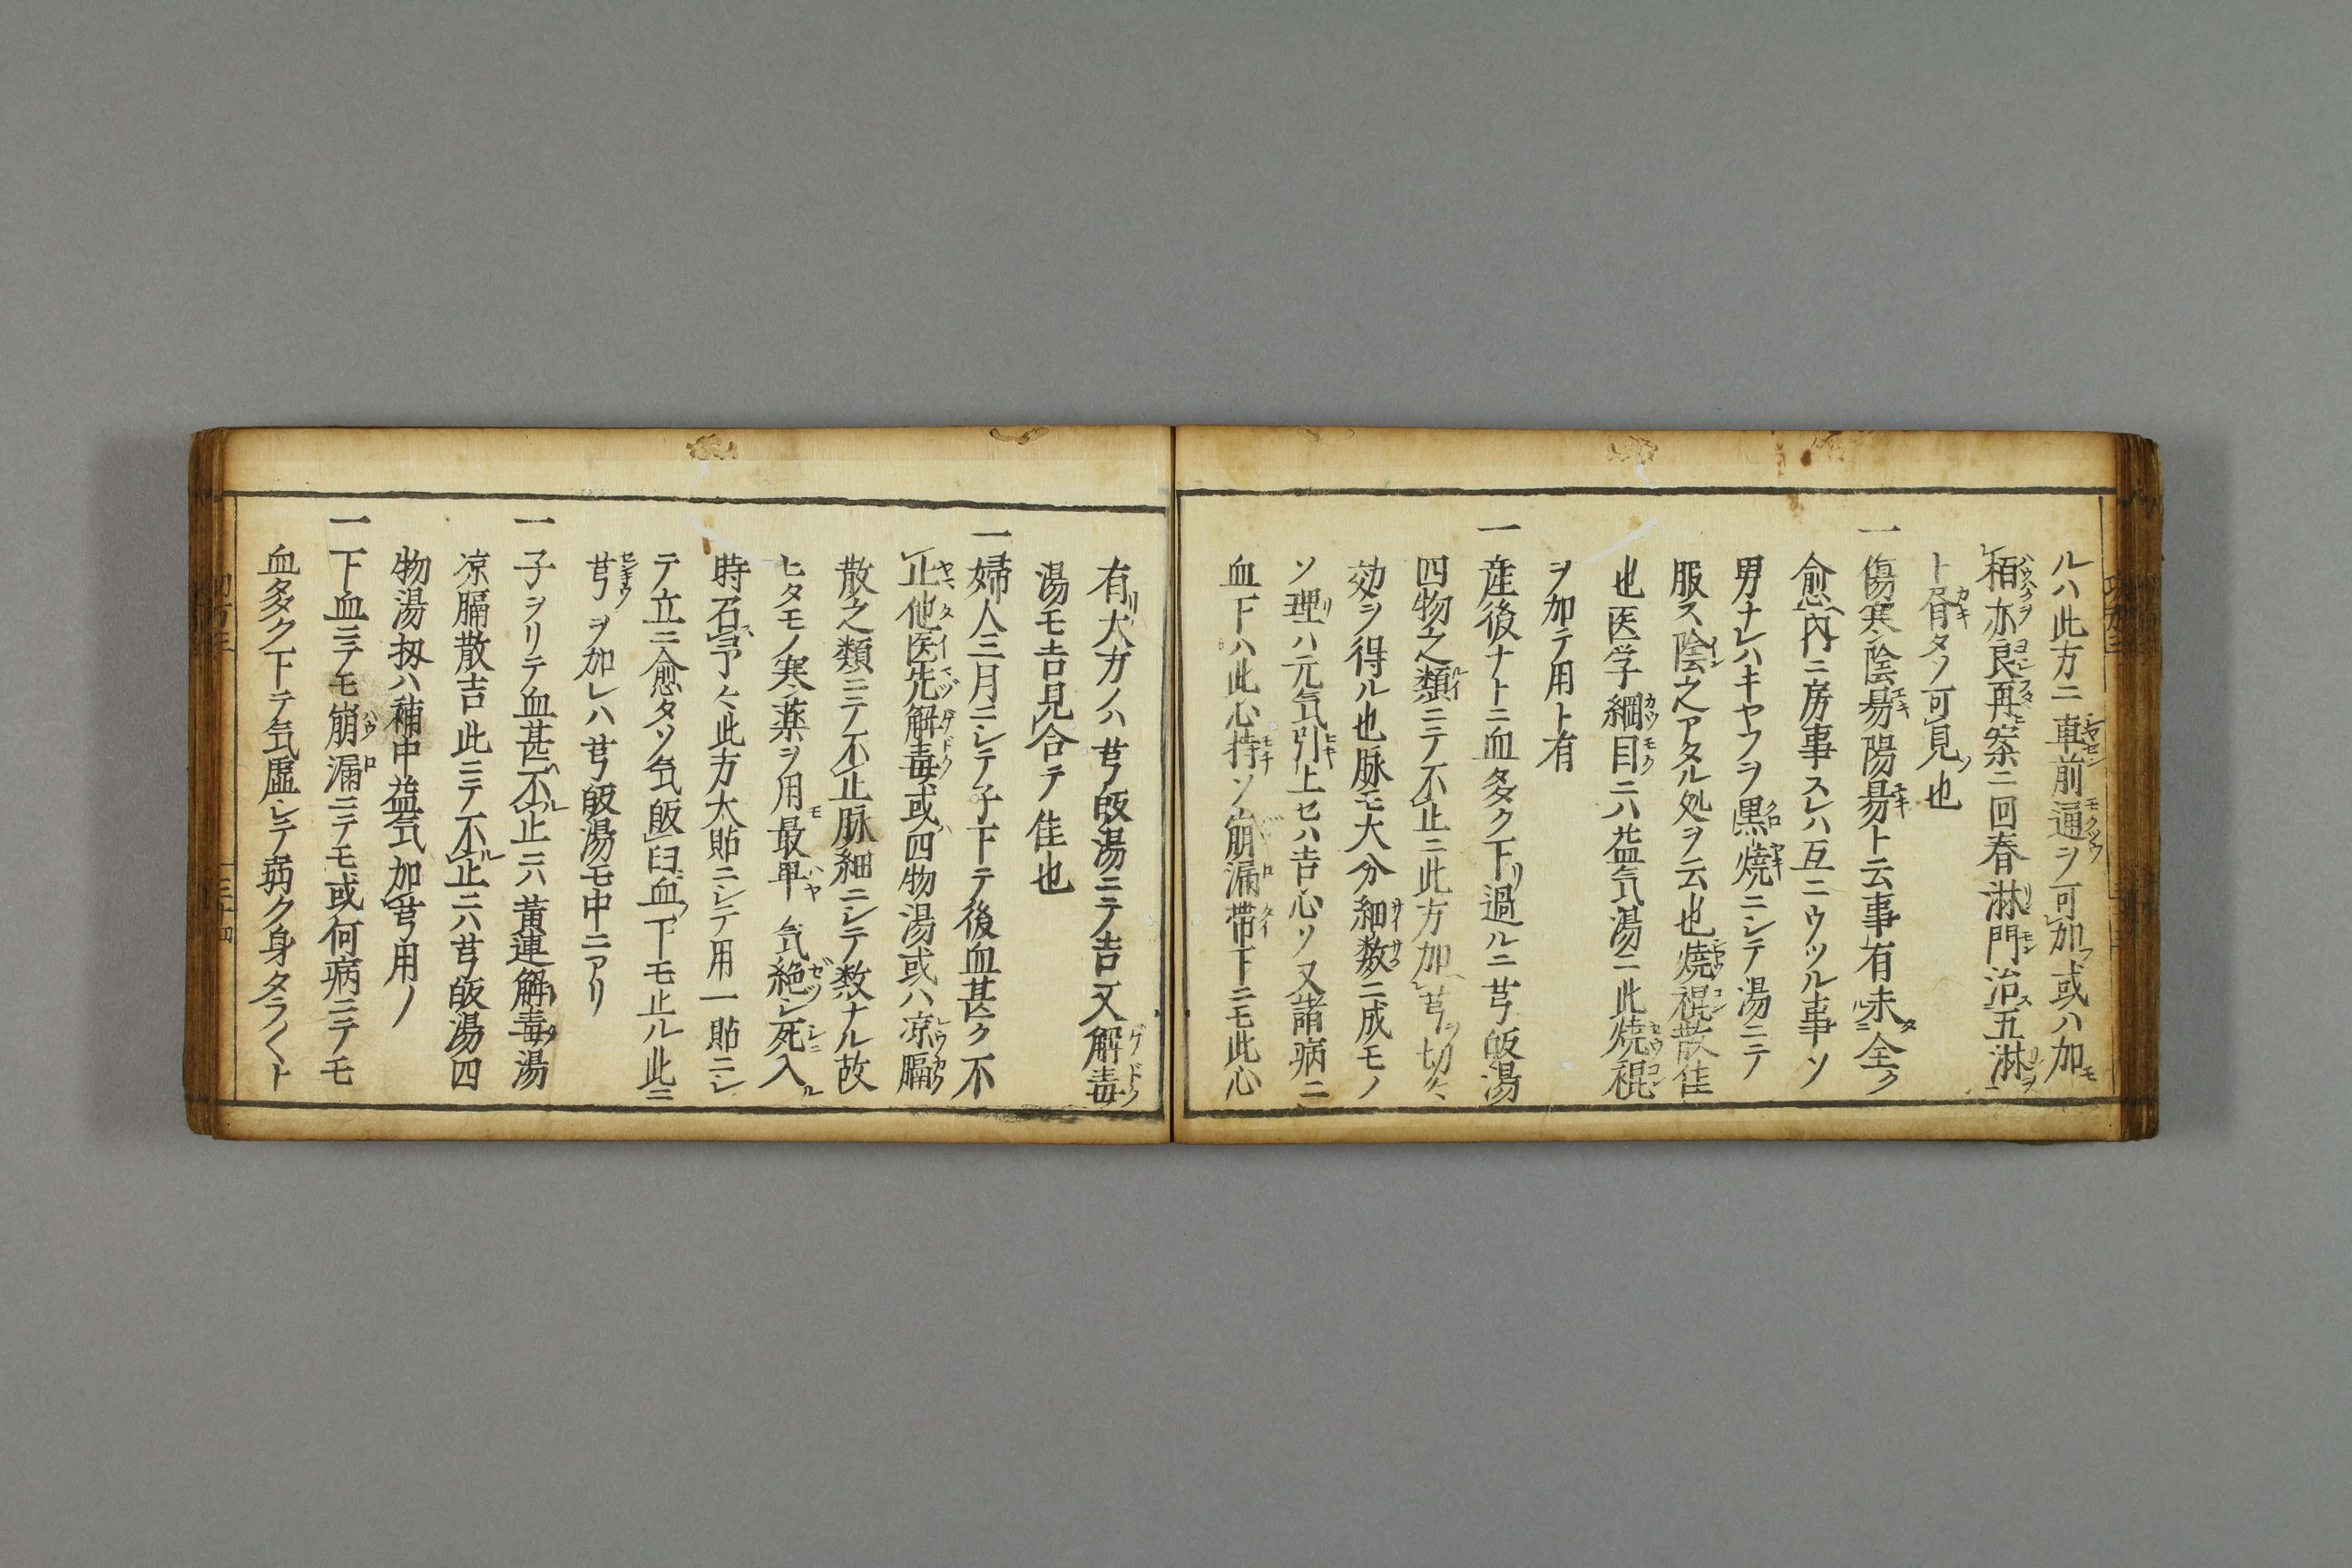 ルハ此方ニ車前通ヲ可加或ハ加
栢亦良再案ニ回春淋門治五淋ニ
ト有タソ可見也
一傷寒陰易陽易ト云事有未全ク
愈内ニ房事スレハ互ニウツル事ソ
男ナレハキヤフヲ黒焼ニシテ湯ニテ
服ス陰之アタル処ヲ云也焼裩散佳
也医学綱目ニハ益気湯ニ此焼裩
ヲ加テ用ト有
一産後ナトニ血多ク下過ルニ芎皈湯
四物之類ニテ不止ニ此方加芎切々
効ヲ得ル也脉モ大分細数ニ成モノ
ソ理ハ元気引上セハ吉心ソ又諸病ニ
血下ハ此心持ソ崩漏帯下ニモ此心
有大方ノハ芎皈湯ニテ吉又解毒
湯モ吉見合テ佳也
一婦人三月ニシテ子下テ後血甚ク不
止他医先解毒或四物湯或ハ凉膈
散之類ニテ不止脉細ニシテ数ナル故
ヒタモノ寒薬ヲ用最早気絶シ死入
時石予々此方大貼ニシテ用一貼ニシ
テ立ニ愈タソ気皈臼血下モ止ル此ニ
芎ヲ加レハ芎皈湯モ中ニアリ
一子ヲリテ血甚不止ニハ黄連解毒湯
凉膈散吉此ニテ不止ニハ芎皈湯四
物湯扨ハ補中益気加芎用ノ
一下血ニテモ崩漏ニテモ或何病ニテモ
血多ク下テ気虚シテ弱ク身タラ〱ト